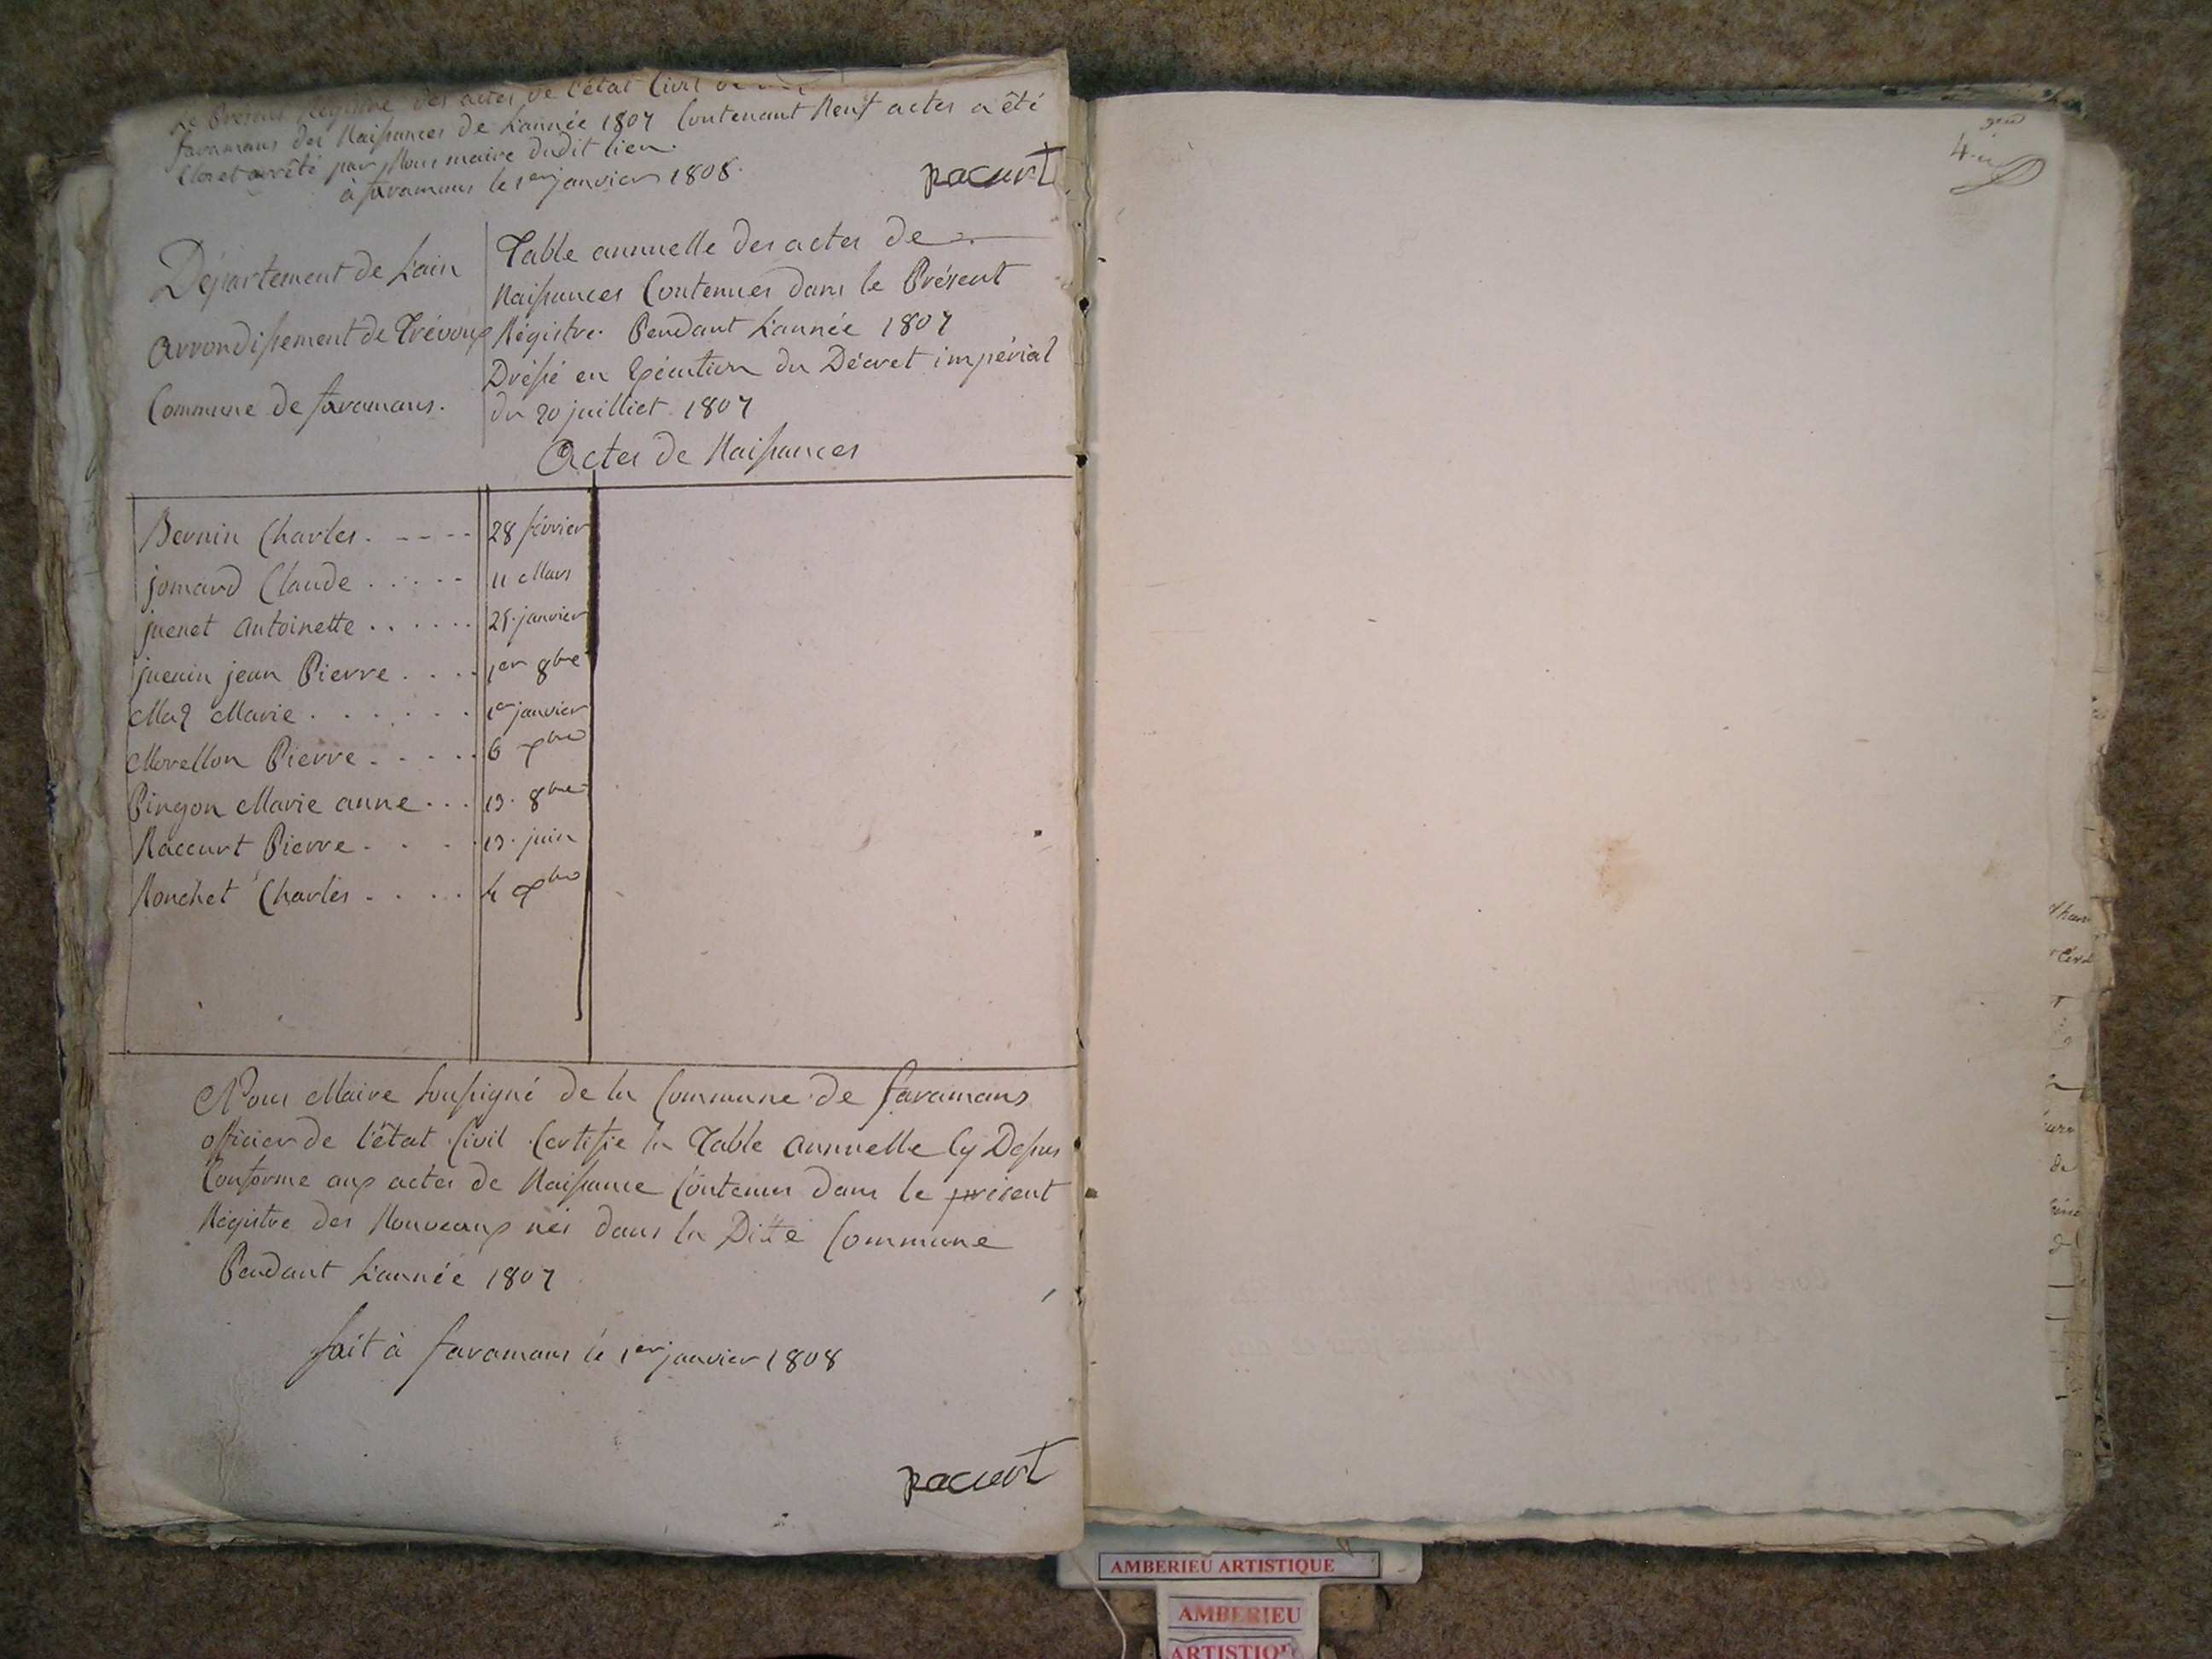 Le Présent Régistre des actes de l'état Civil
faramans des Naissances de L'année 1807 Contenant Neuf actes a été
Clos et arrêté par Nous maire dudit lieu.
à faramans le 1er janvier 1808.
racurt
Département de L'ain
arrondissement de Trévoux
Commune de faramans.
Table annuelle des actes de
Naissances Contenues dans le Présent
Régistre. Pendant L'année 1807
Dréssé en Exécution du Décret impérial
du 20 juilliet 1807
Actes de Naissances
Bernin Charles. ---- 28 février
jomard Claude ..... 11 Mars
juenet antoinette ...... 25. janvier
juenin jean Pierre .... 1er 8bre
Marie ...... 1er janvier
Morellon Pierre ..... 6
Pingon Marie anne ... 19. 8bre
Raccurt Pierre .... 19. juin
Ronchet Charles .... 4
Nous Maire soussigné de la Commune de faramans
officier de l'état Civil Certifie la Table annuelle Cy Dessus
Conforme aux actes de Naissance Contenus dans le présent
Régistre des Nouveaux nés dans la Ditte Commune
Pendant L'année 1807
fait à faramans le 1er janvier 1808
racurt
AMBERIEU ARTISTIQUE
AMBERIEU